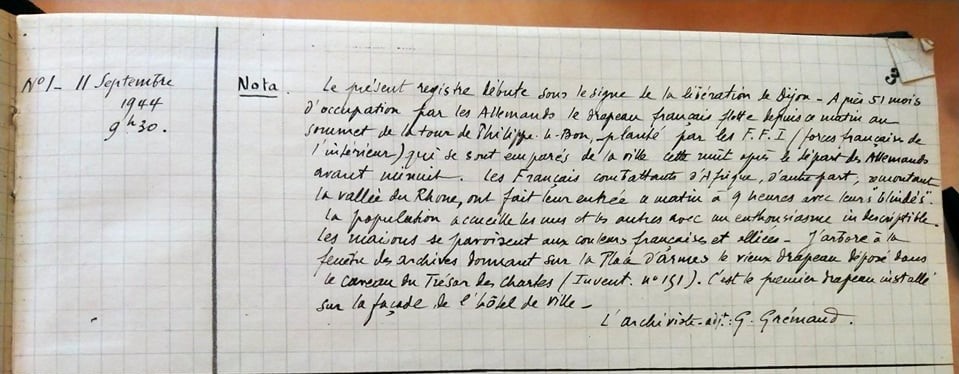 3
N° 1 - 11 Septembre
1944
9h30.
Nota. Le présent registre débute sous le signe de la libération de Dijon - Après 51 mois
d'occupation par les Allemands le drapeau français flotte depuis ce matin au
sommet de la tour de Philippe-le-Bon, planté par les F.F.I (forces française de
l'intérieur) qui se sont emparés de la ville cette nuit après le départ des Allemands
avant minuit. Les Français combattants d'Afrique, d'autre part, remontant
la vallée du Rhone, ont fait leur entrée ce matin à 9 heures avec leurs "blindés".
La population accueille les uns et les autres avec un enthousiasme indescriptible.
Les maisons se pavoisent aux couleurs françaises et alliées - J'arbore à la
fenêtre des archives donnant sur la Place d'Armes le vieux drapeau déposé dans
le caveau du Trésor des Chartes (Invent. n° 191). C'est le premier drapeau installé
sur la façade de l'hôtel de ville -
L'archiviste-adjt: G. Grémaud.